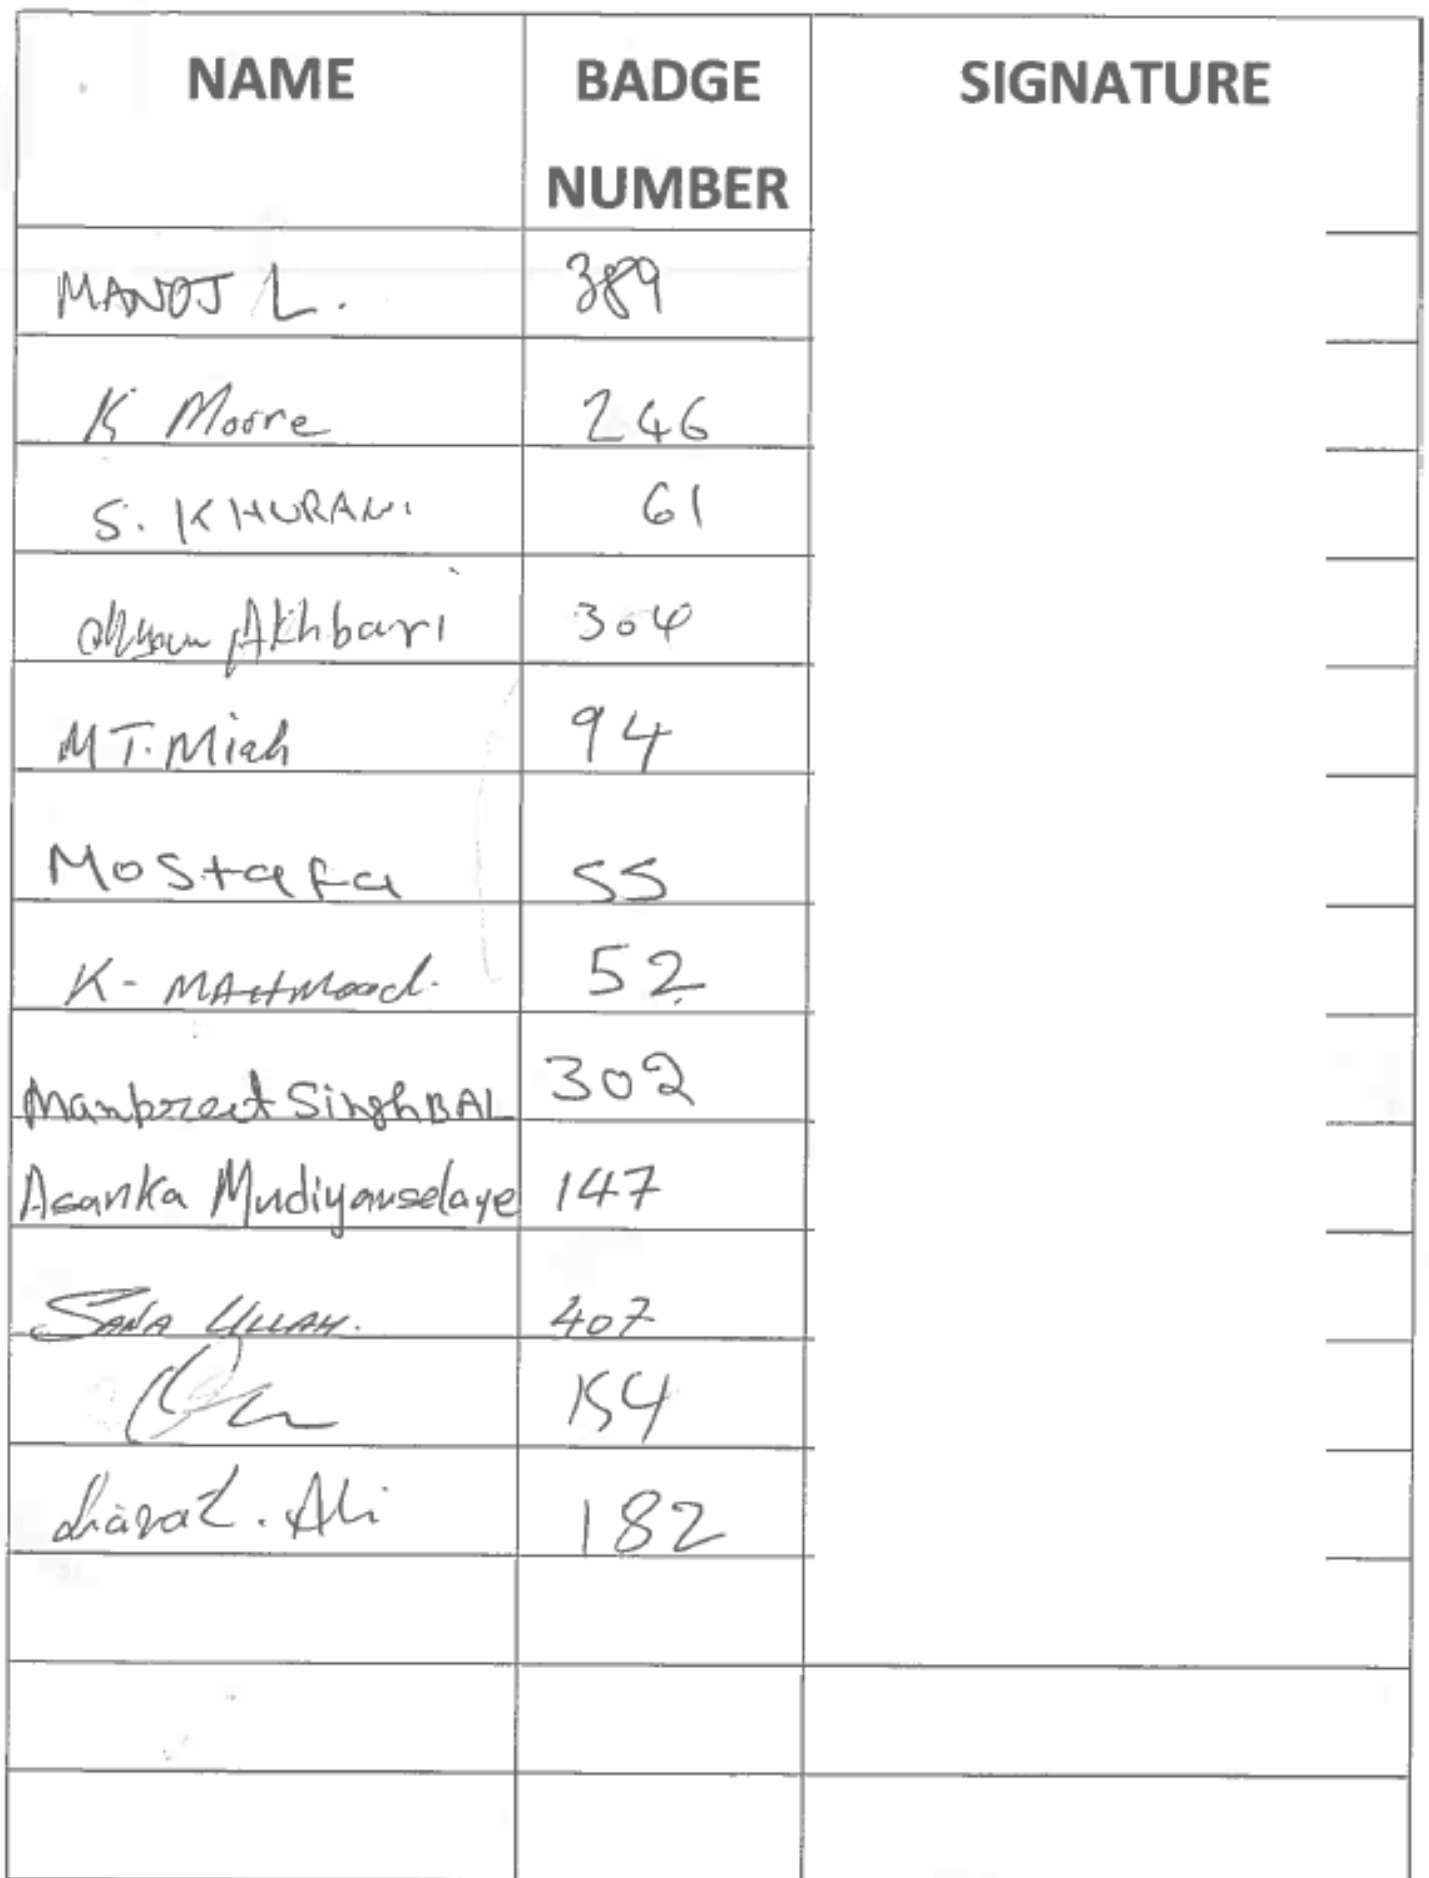 NAME BADGE SIGNATURE
NUMBER
MANOJ L. 389
K Moore 246
S. KHURANI 61
Akhbari 304
M T. Miah 94
Mostafa 55
K- MAHMood. 52
Manpreet Singh BAL 302
Asanka Mudiyanselage 147
SANA ULLAH. 407
154
Ali 182